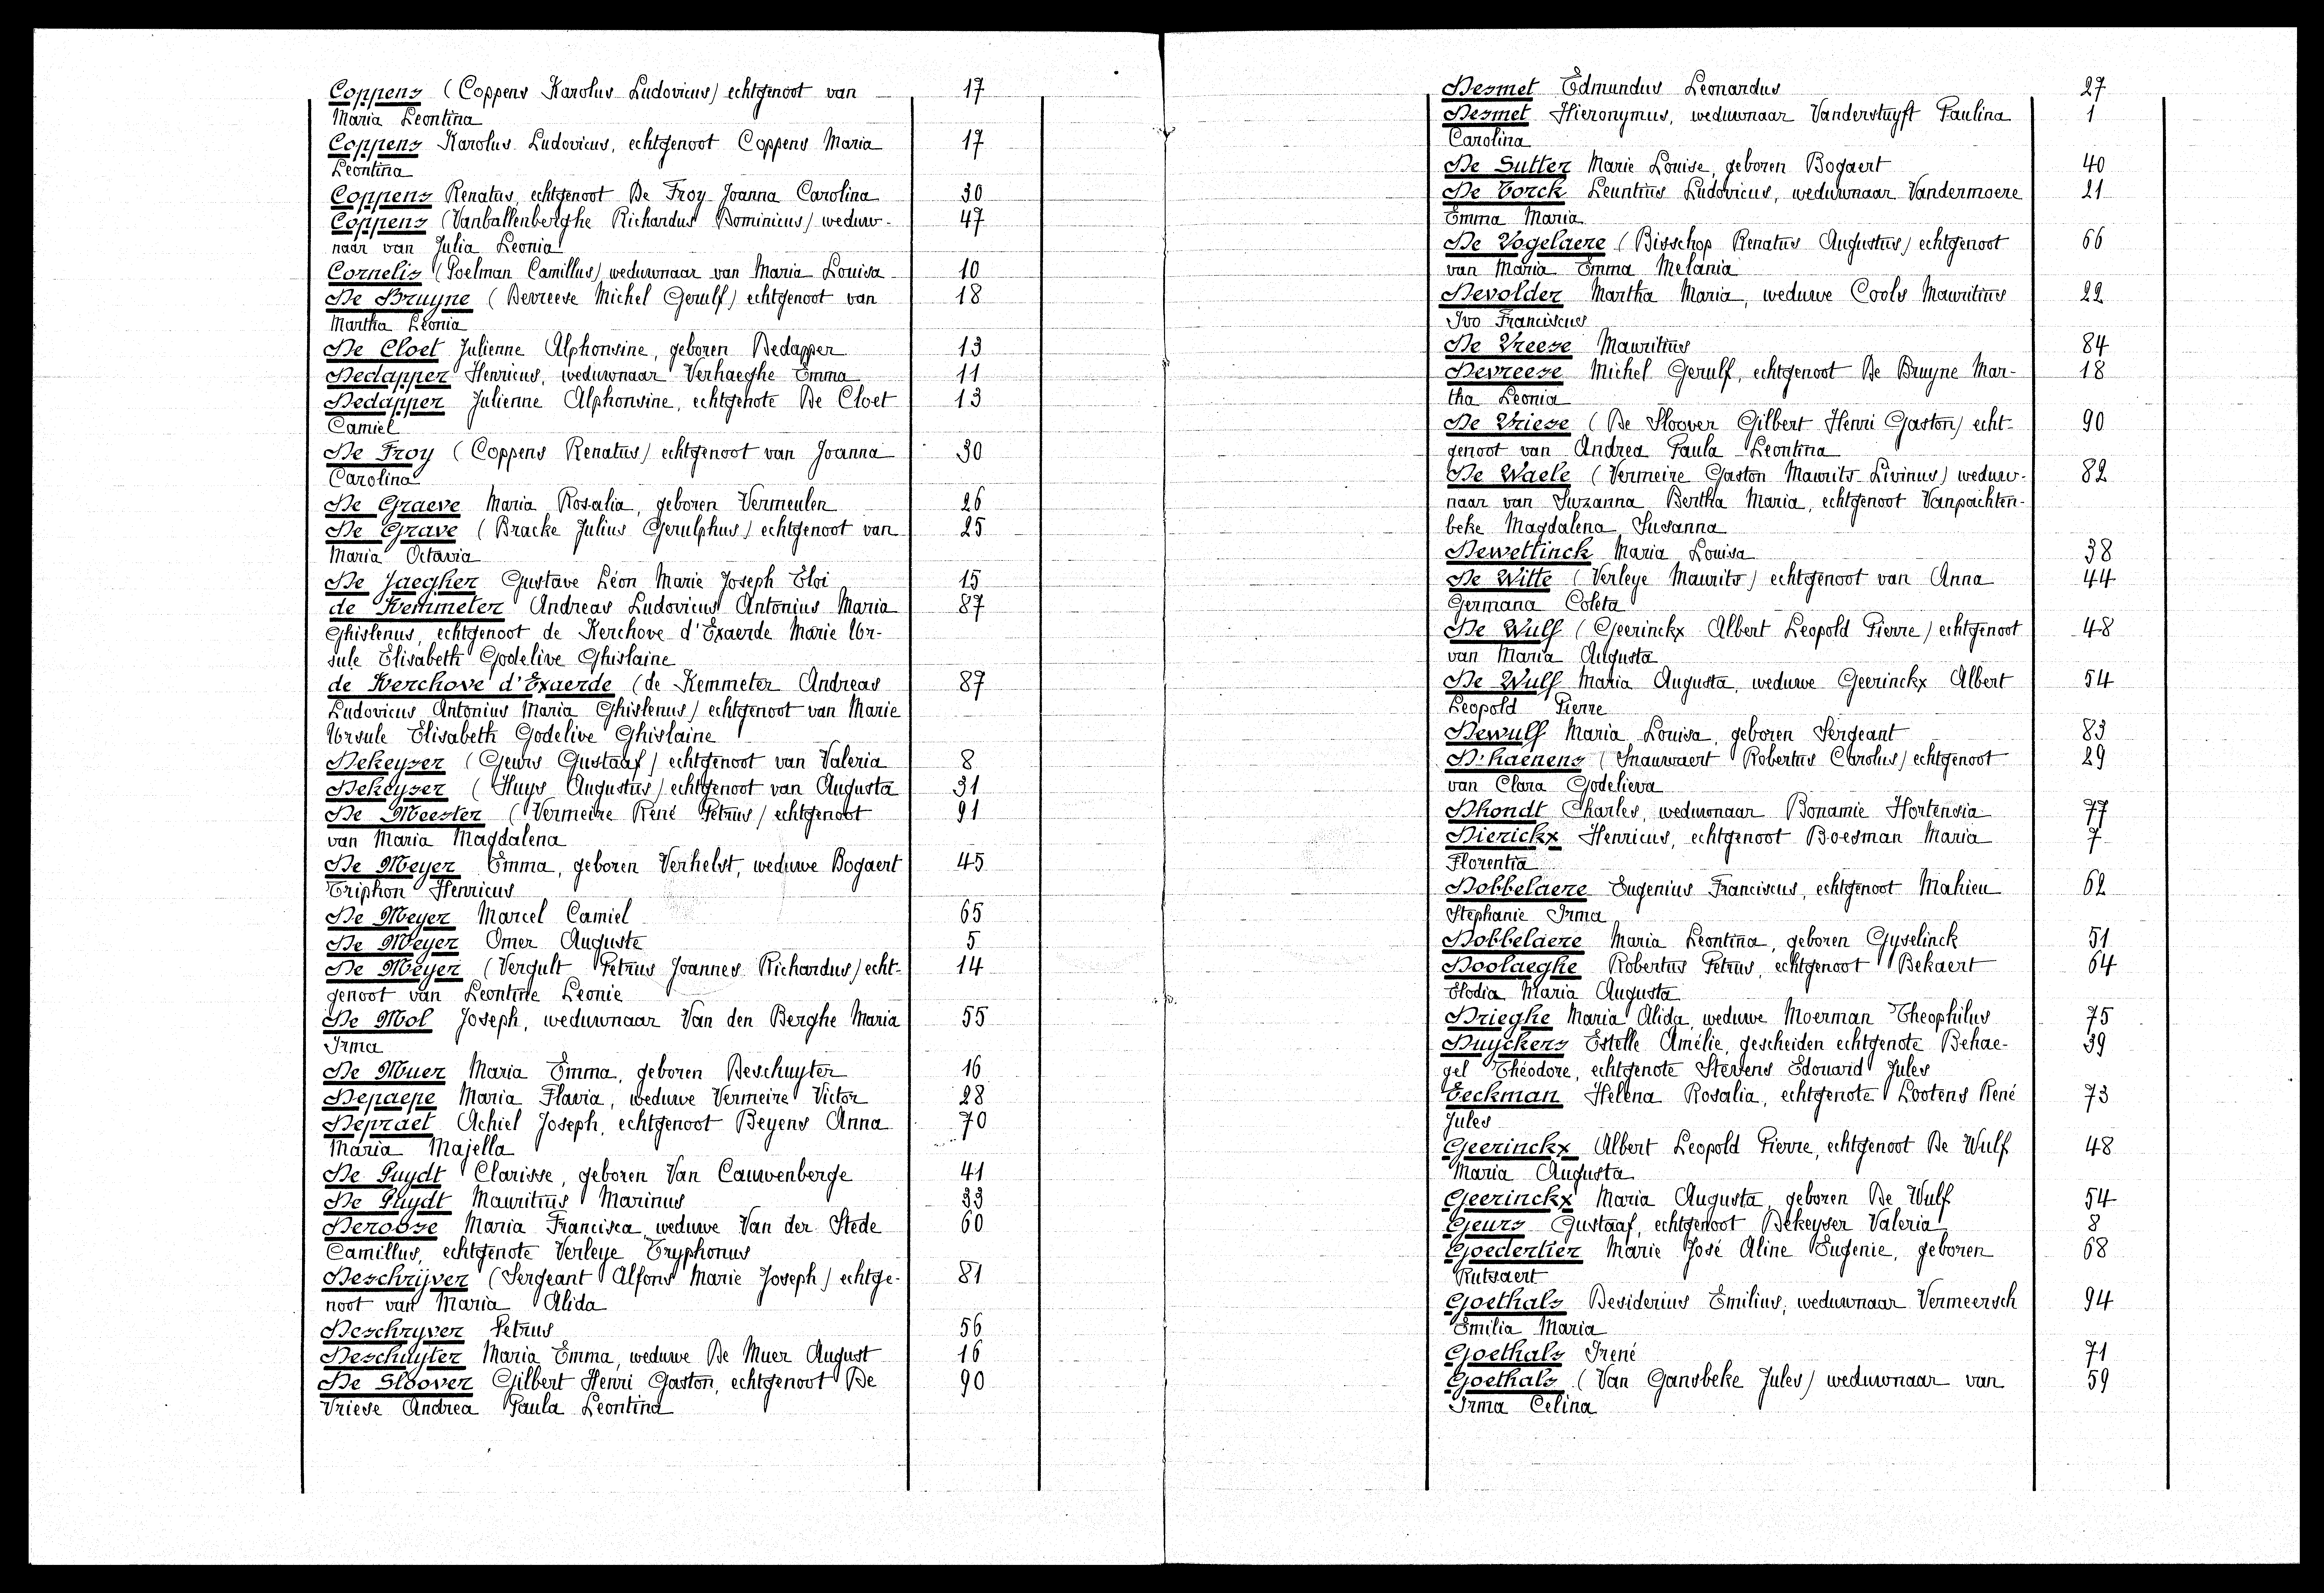 Coppens (Coppens Karolus Ludovicus) echtgenoot van 17
Maria Leontina
Coppens Karolus Ludovicus, echtgenoot Coppens Maria 17
Leontina
Coppens Renatus, echtgenoot De Froy Joanna Carolina 30
Coppens (Vanballenberghe Richardus Dominicus) weduw- 47
naar van Julia Leonia
Cornelis (Poelman Camillus) weduwnaar van Maria Louisa 10
De Bruyne (Devreese Michel Gerulf) echtgenoot van 18
Martha Leonia
De Cloet Julienne Alphonsine, geboren Dedapper 13
Dedapper Henricus, weduwnaar Verhaeghe Emma 11
Dedapper Julienne Alphonsine, echtgenote De Cloet 13
Camiel
De Froy (Coppens Renatus) echtgenoot van Joanna 30
Carolina
De Graeve Maria Rosalia, geboren Vermeulen 26
De Grave (Bracke Julius Gerulphus) echtgenoot van 25
Maria Octavia
De Jaegher Gustave Léon Marie Joseph Eloi 15
de Kemmeter Andreas Ludovicus Antonius Maria 87
Ghislenus, echtgenoot de Kerchove d'Exaerde Marie Ur-
sule Elisabeth Godelive Ghislaine
de Kerchove d'Exaerde (de Kemmeter Andreas 87
Ludovicus Antonius Maria Ghislenus) echtgenoot van Marie
Ursule Elisabeth Godelive Ghislaine
Dekeyser (Geurs Gustaaf) echtgenoot van Valeria 8
Dekeyser (Huys Augustus) echtgenoot van Augusta 31
De Meester (Vermeire René Petrus) echtgenoot 91
van Maria Magdalena
De Meyer Emma, geboren Verhelst, weduwe Bogaert 45
Triphon Henricus
De Meyer Marcel Camiel 65
De Meyer Omer Auguste 5
De Meyer (Vergult Petrus Joannes Richardus) echt- 14
genoot van Leontine Leonie
De Mol Joseph, weduwnaar Van den Berghe Maria 55
Irma
De Muer Maria Emma, geboren Deschuyter 16
Depaepe Maria Flavia, weduwe Vermeire Victor 28
Depraet Achiel Joseph, echtgenoot Beyens Anna 70
Maria Majella
De Puydt Clarisse, geboren Van Cauwenberge 41
De Puydt Mauritius Marinus 33
Deroose Maria Francisca, weduwe Van der Stede 60
Camillus, echtgenote Verleye Tryphonus
Deschrijver (Sergeant Alfons Marie Joseph) echtge- 81
noot van Maria Alida
Deschryver Petrus 56
Deschuyter Maria Emma, weduwe De Muer August 16
De Sloover Gilbert Henri Gaston, echtgenoot De 90
Vriese Andrea Paula Leontina
Desmet Edmundus Leonardus 27
Desmet Hieronymus, weduwnaar Vanderstuyft Paulina 1
Carolina
De Sutter Marie Louise, geboren Bogaert 40
De Torck Leuntius Ludovicus, weduwnaar Vandermoere 21
Emma Maria
De Vogelaere (Bisschop Renatus Augustus) echtgenoot 66
van Maria Emma Melania
Devolder Martha Maria, weduwe Cools Mauritius 22
Ivo Franciscus
De Vreese Mauritius 84
Devreese Michel Gerulf, echtgenoot De Bruyne Mar- 18
tha Leonia
De Vriese (De Sloover Gilbert Henri Gaston) echt- 90
genoot van Andrea Paula Leontina
De Waele (Vermeire Gaston Maurits Livinus) weduw- 82
naar van Suzanna Bertha Maria, echtgenoot Vanpachten-
beke Magdalena Susanna
Dewettinck Maria Louisa 38
De Witte (Verleye Maurits) echtgenoot van Anna 44
Germana Coleta
De Wulf (Geerinckx Albert Leopold Pierre) echtgenoot 48
van Maria Augusta
De Wulf Maria Augusta, weduwe Geerinckx Albert 54
Leopold Pierre
Dewulf Maria Louisa, geboren Sergeant 83
D'haenens (Snauwaert Robertus Carolus) echtgenoot 29
van Clara Godelieva
Dhondt Charles, weduwnaar Bonamie Hortensia 77
Dierickx Henricus, echtgenoot Boesman Maria 7
Florentia
Dobbelaere Eugenius Franciscus, echtgenoot Mahieu 62
Stephanie Irma
Dobbelaere Maria Leontina, geboren Gyselinck 51
Doolaeghe Robertus Petrus, echtgenoot Bekaert 64
Elodia Maria Augusta
Drieghe Maria Alida, weduwe Moerman Theophilus 75
Duyckers Estelle Amélie, gescheiden echtgenote Dehae- 39
gel Théodore, echtgenote Stevens Edouard Jules
Eeckman Helena Rosalia, echtgenote Lootens René 73
Jules
Geerinckx Albert Leopold Pierre, echtgenoot De Wulf 48
Maria Augusta
Geerinckx Maria Augusta, geboren De Wulf 54
Geurs Gustaaf, echtgenoot Dekeyser Valeria 8
Goedertier Marie José Aline Eugenie, geboren 68
Rutsaert
Goethals Desiderius Emilius, weduwnaar Vermeersch 94
Emilia Maria
Goethals Irené 71
Goethals (Van Gansbeke Jules) weduwnaar van 59
Irma Celina